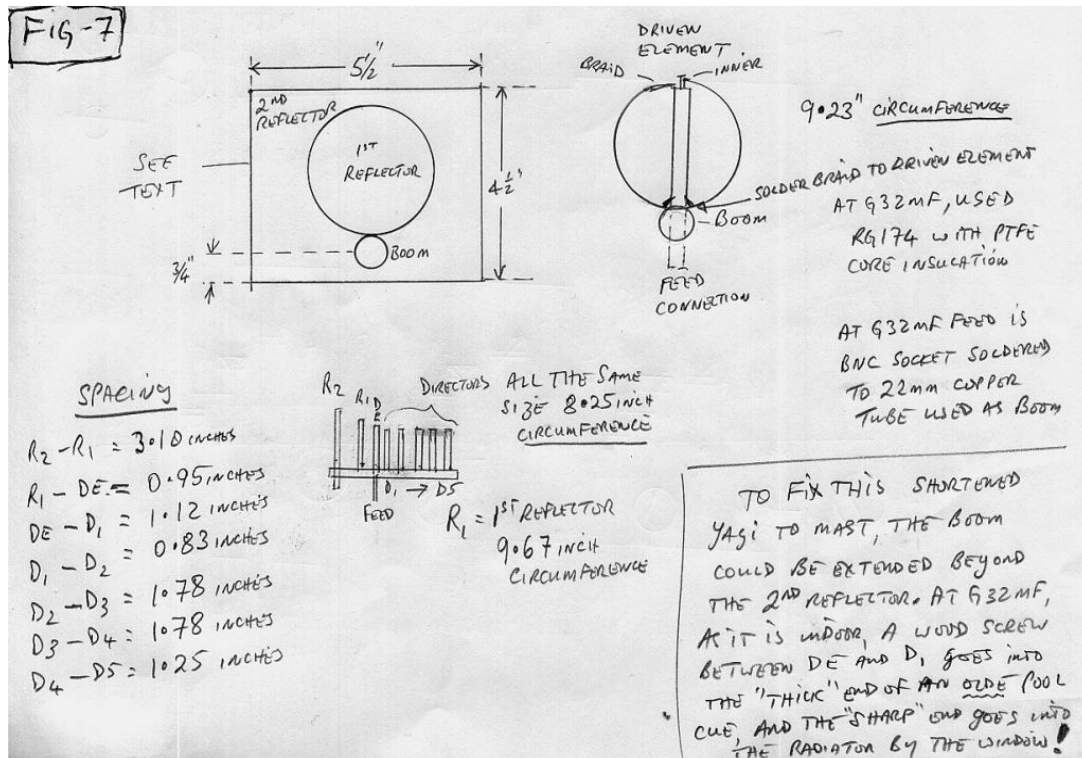 FIG-7
5½"
2ND
REFLECTOR
1ST
REFLECTOR
SEE
TEXT
4½"
BOOM
¾"
DRIVEN
ELEMENT
BRAID
INNER
SOLDER BRAID TO DRIVEN ELEMENT
BOOM
FEED
CONNECTION
9.23" CIRCUMFERENCE
AT G3ZMF, USED
RG174 WITH PTFE
CORE INSULATION
AT G3ZMF FEED IS
BNC SOCKET SOLDERED
TO 22mm COPPER
TUBE USED AS BOOM
SPACING
R2 - R1 = 3.10 INCHES
R1 - DE = 0.95 INCHES
DE - D1 = 1.12 INCHES
D1 - D2 = 0.83 INCHES
D2 - D3 = 1.78 INCHES
D3 - D4 = 1.78 INCHES
D4 - D5 = 1.25 INCHES
R2
R1
DE
DIRECTORS ALL THE SAME
SIZE 8.25 INCH
CIRCUMFERENCE
D1 → D5
FEED
R1 = 1ST REFLECTOR
9.67 INCH
CIRCUMFERENCE
TO FIX THIS SHORTENED
YAGI TO MAST, THE BOOM
COULD BE EXTENDED BEYOND
THE 2ND REFLECTOR. AT G3ZMF,
AS IT IS INDOOR, A WOOD SCREW
BETWEEN DE AND D1 GOES INTO
THE "THICK" END OF AN OLDE POOL
CUE, AND THE "SHARP" END GOES INTO
THE RADIATOR BY THE WINDOW!